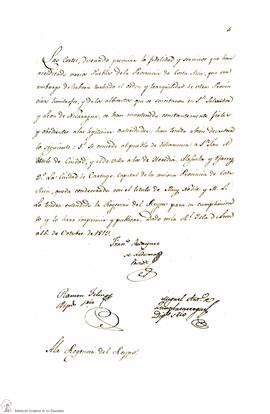 Las Cortes, deseando premiar la fidelidad y servicios que han
acreditado varios Pueblos de la Provincia de Costa Rica, que sin
embargo de haberse turbado el orden y tranquilidad de otras Provin
cias limítrofes, y de los alborotos que se suscitaron en S.n Salvador
y Leon de Nicaragua, se han mantenido constantemente fieles
y obedientes a las legítimas autoridades, han tenido á bien decretar
lo siguiente: 1.º Se concede al pueblo de Villanueva de S.n José el
título de Ciudad, y el de villa a los de Heredia, Alajuela y Ujarraz
2.º La Ciudad de Cartago, capital de la misma Provincia de Costa
Rica, queda condecorada con el título de Muy Noble y M. L.
Lo tendrá entendido la Regencia del Reyno para su cumplimiento
y lo hará imprimir y publicar. Dado en la R.l Isla de Leon
á 16 de Octubre de 1813.
Fran.co Rodriguez
de Ledesma
Presid.te
Ramon Feliu
Dip.do Srio
Miguel Ant.o de
Zumalacarregui
Dip.do Srio
A la Regencia del Reyno.